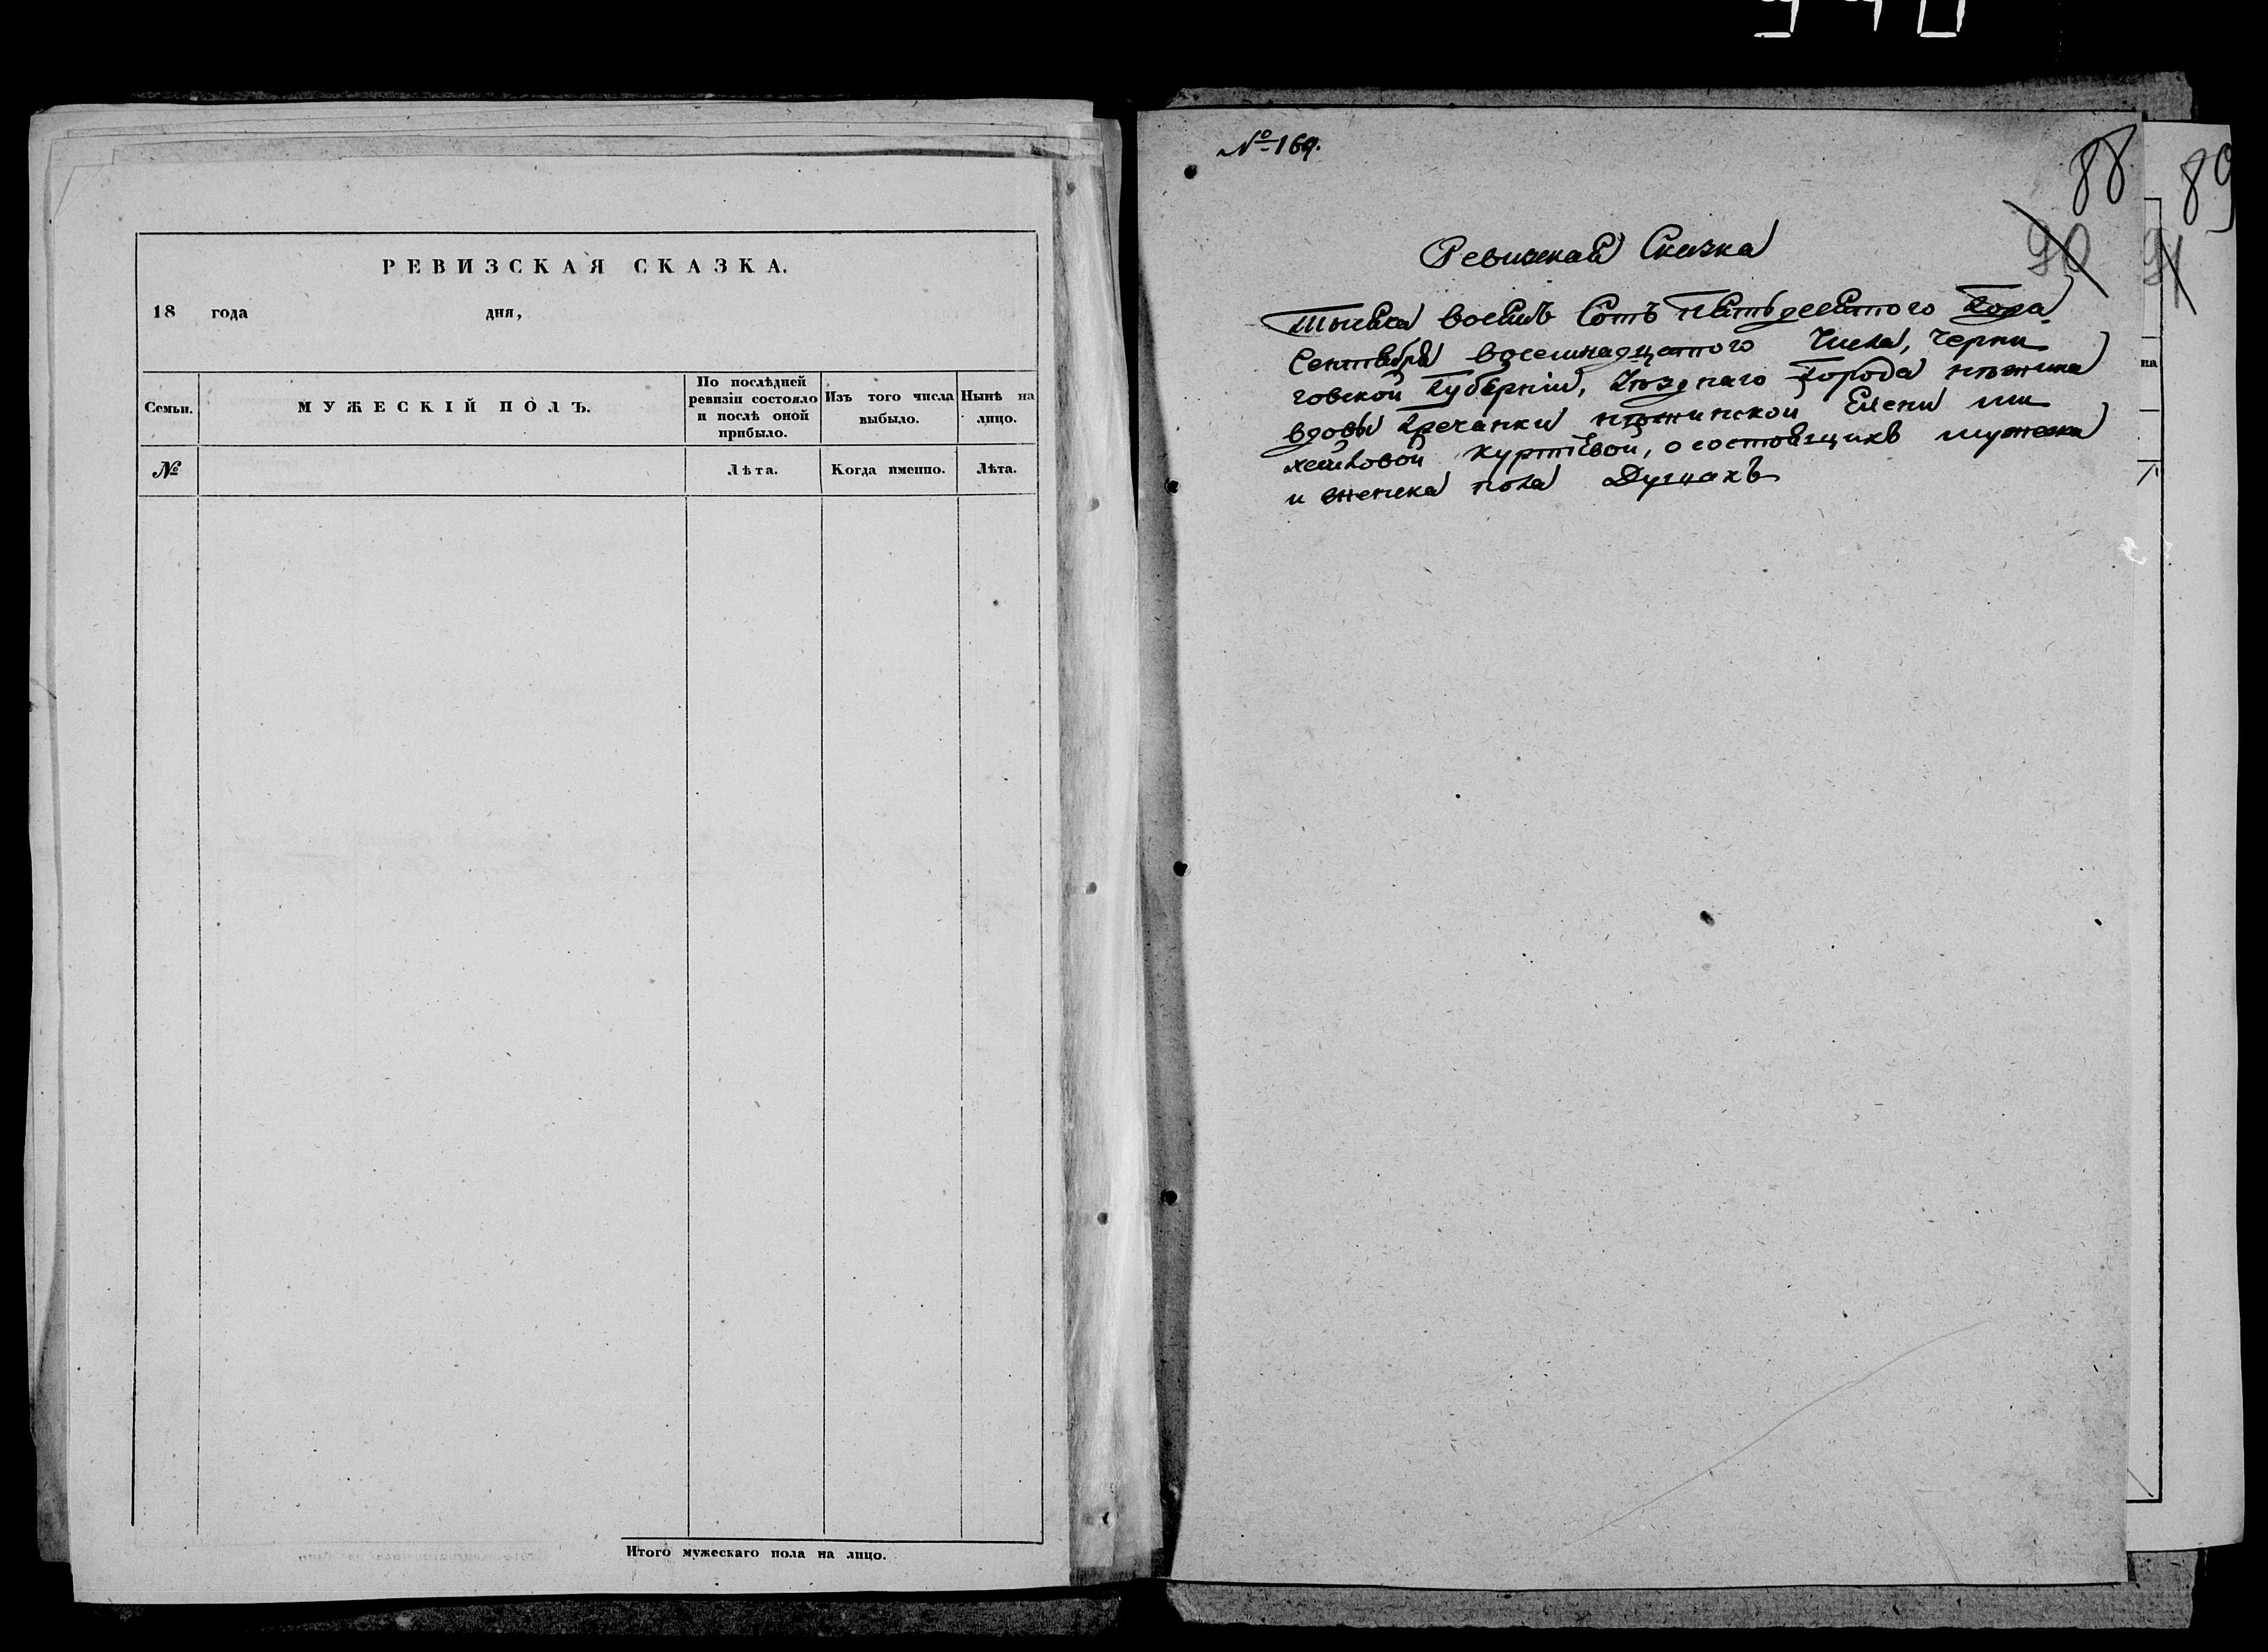 РЕВИЗСКАЯ СКАЗКА.
18 года дня,
Семьи.
МУЖЕСКІЙ ПОЛЪ.
По послѣдней
ревизіи состояло
и послѣ оной
прибыло.
Изъ того числа
выбыло.
Нынѣ на
лицо.
№
Лѣта.
Когда именно.
Лѣта.
Итого мужескаго пола на лицо.
№ 169.
88
90
Ревизская Сказка
Тысяча восемь Сотъ пятьдесятого Года
Сентября восемнадцатого Числа, Черни
говской Губерніи, Уѣзднаго Города нѣжина
вдовы Гречанки нѣжинской Елены ми
хайловой Куртіевой, о состоящихъ мужеска
и женска пола Душахъ
89
91
на